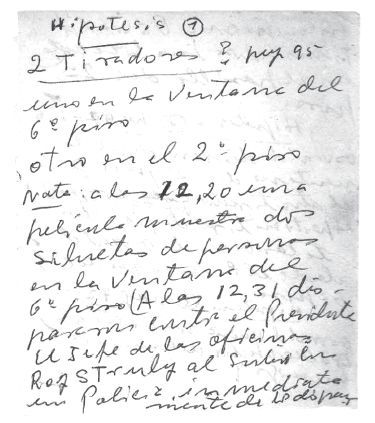 Hipotesis ①
2 Tiradores ? pag 95
uno en la Ventana del
6º piso
otro en el 2º piso
Nota: a las 12,20 una
pelicula muestra dos
Siluetas de personas
en la Ventana del
6º piso (A las 12,31 dis-
pararon contra el Presidente
El Jefe de las oficinas
Roy S Truly al subir
un Policia inmediata
mente de